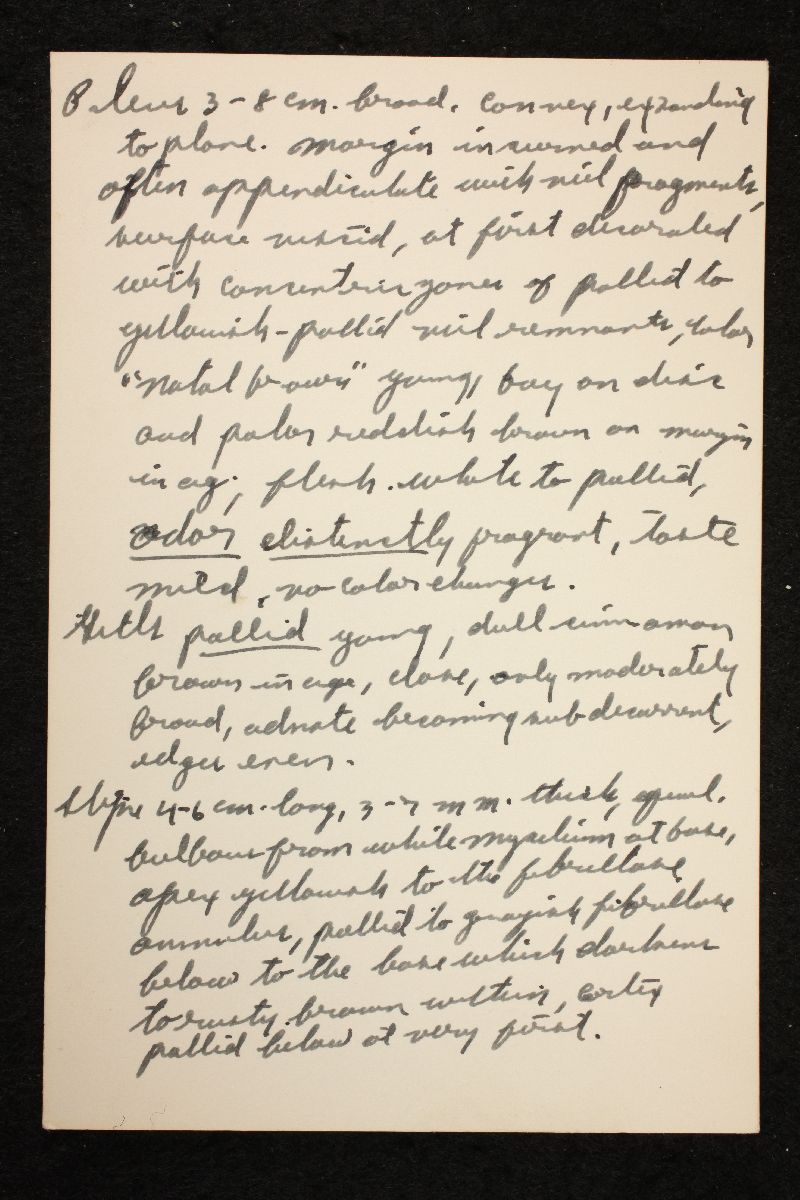 Pileus 3-8 cm. broad. convex, expanding
to plane. margin incurved and
often appendiculate with veil fragments,
surface viscid, at first decorated
with concentric zones of pallid to
yellowish-pallid veil remnants, color
"natal brown" young, bay on disc
and paler reddish brown on margin
in age; flesh. white to pallid,
odor distinctly fragrant, taste
mild, no color changes.
Gills pallid young, dull cinnamon
brown in age, close, only moderately
broad, adnate becoming subdecurrent,
edges even.
Stipe 4-6 cm. long, 3-7 mm. thick, equal.
bulbous from white mycelium at base,
apex yellowish to the fibrillose
annulus, pallid to grayish fibrillose
below to the base which darkens
to rusty brown within, cortex
pallid below at very first.